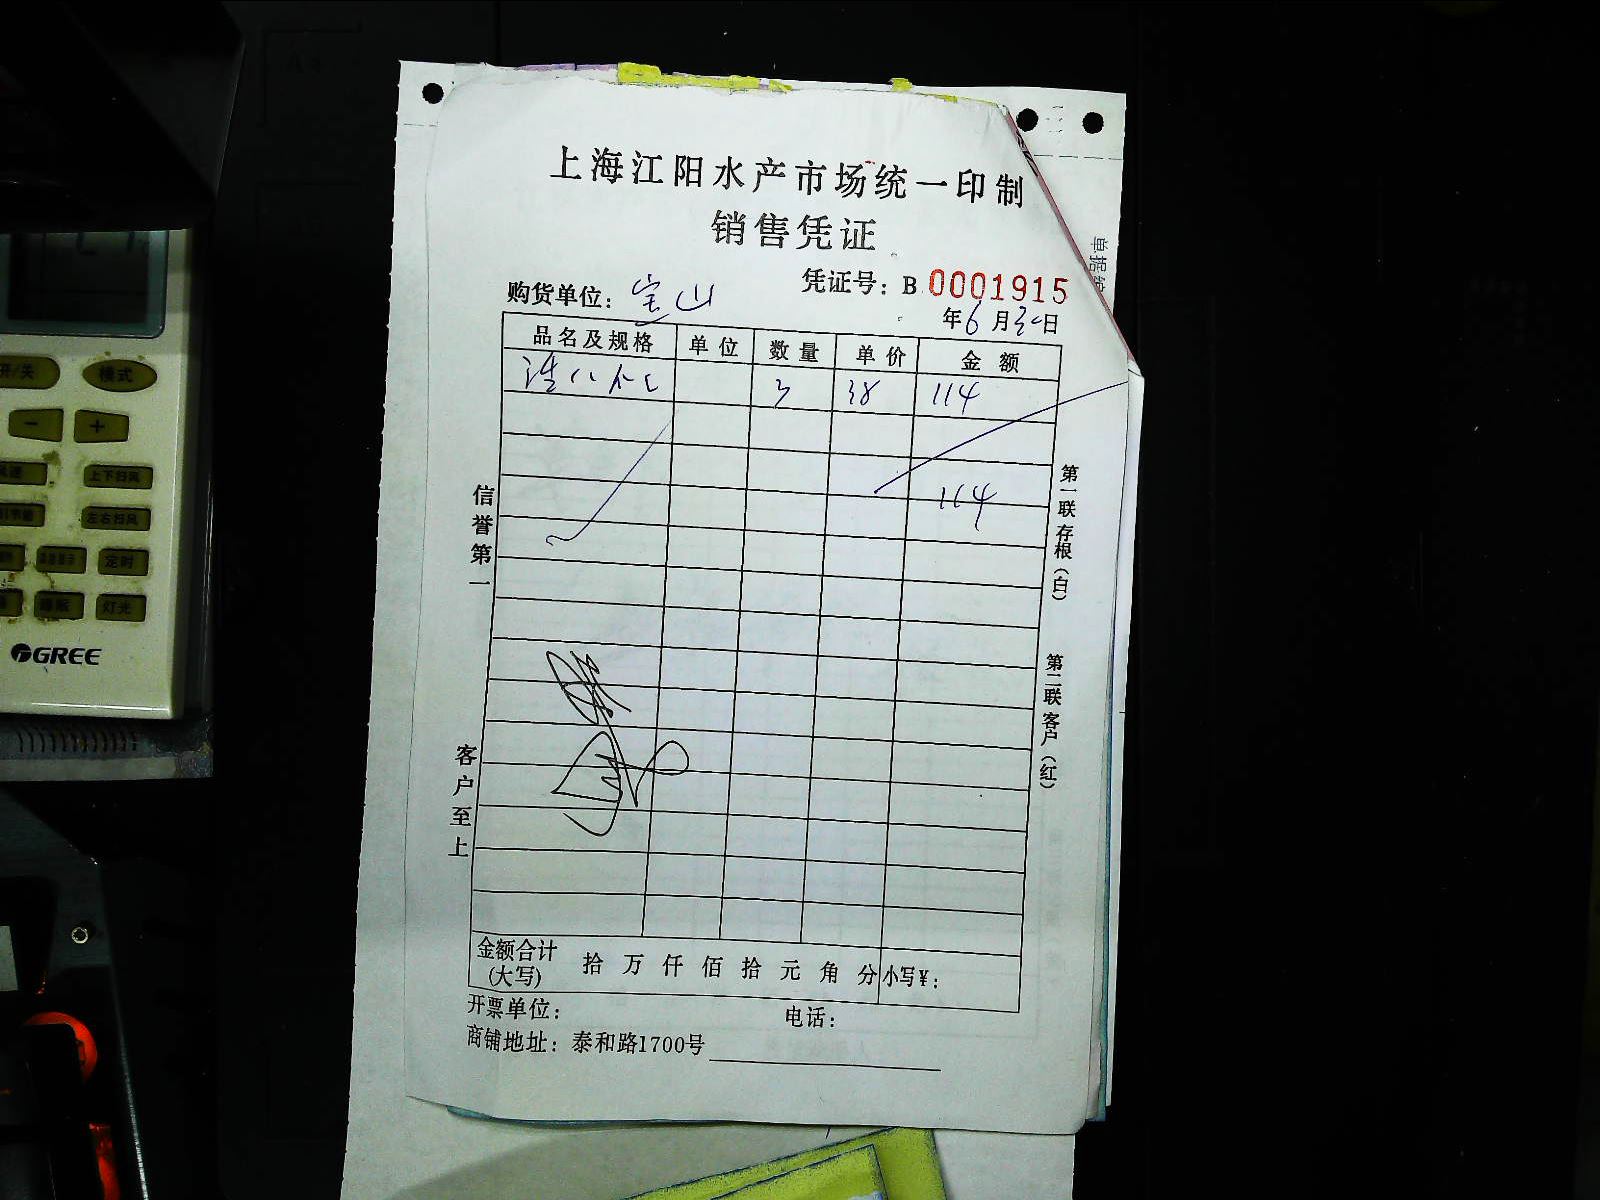 上海江阳水产市场统一印制
销售凭证
凭证号：B 0001915
购货单位：宝山
年6月30日
品名及规格 单位 数量 单价 金额
3 38 114
114
信誉第一
客户至上
第一联存根（白）
第二联客户（红）
金额合计（大写） 拾 万 仟 佰 拾 元 角 分 小写¥：
开票单位： 电话：
商铺地址：泰和路1700号
单据
开/关 模式
- +
上下扫风
左右扫风
定时
灯光
GREE